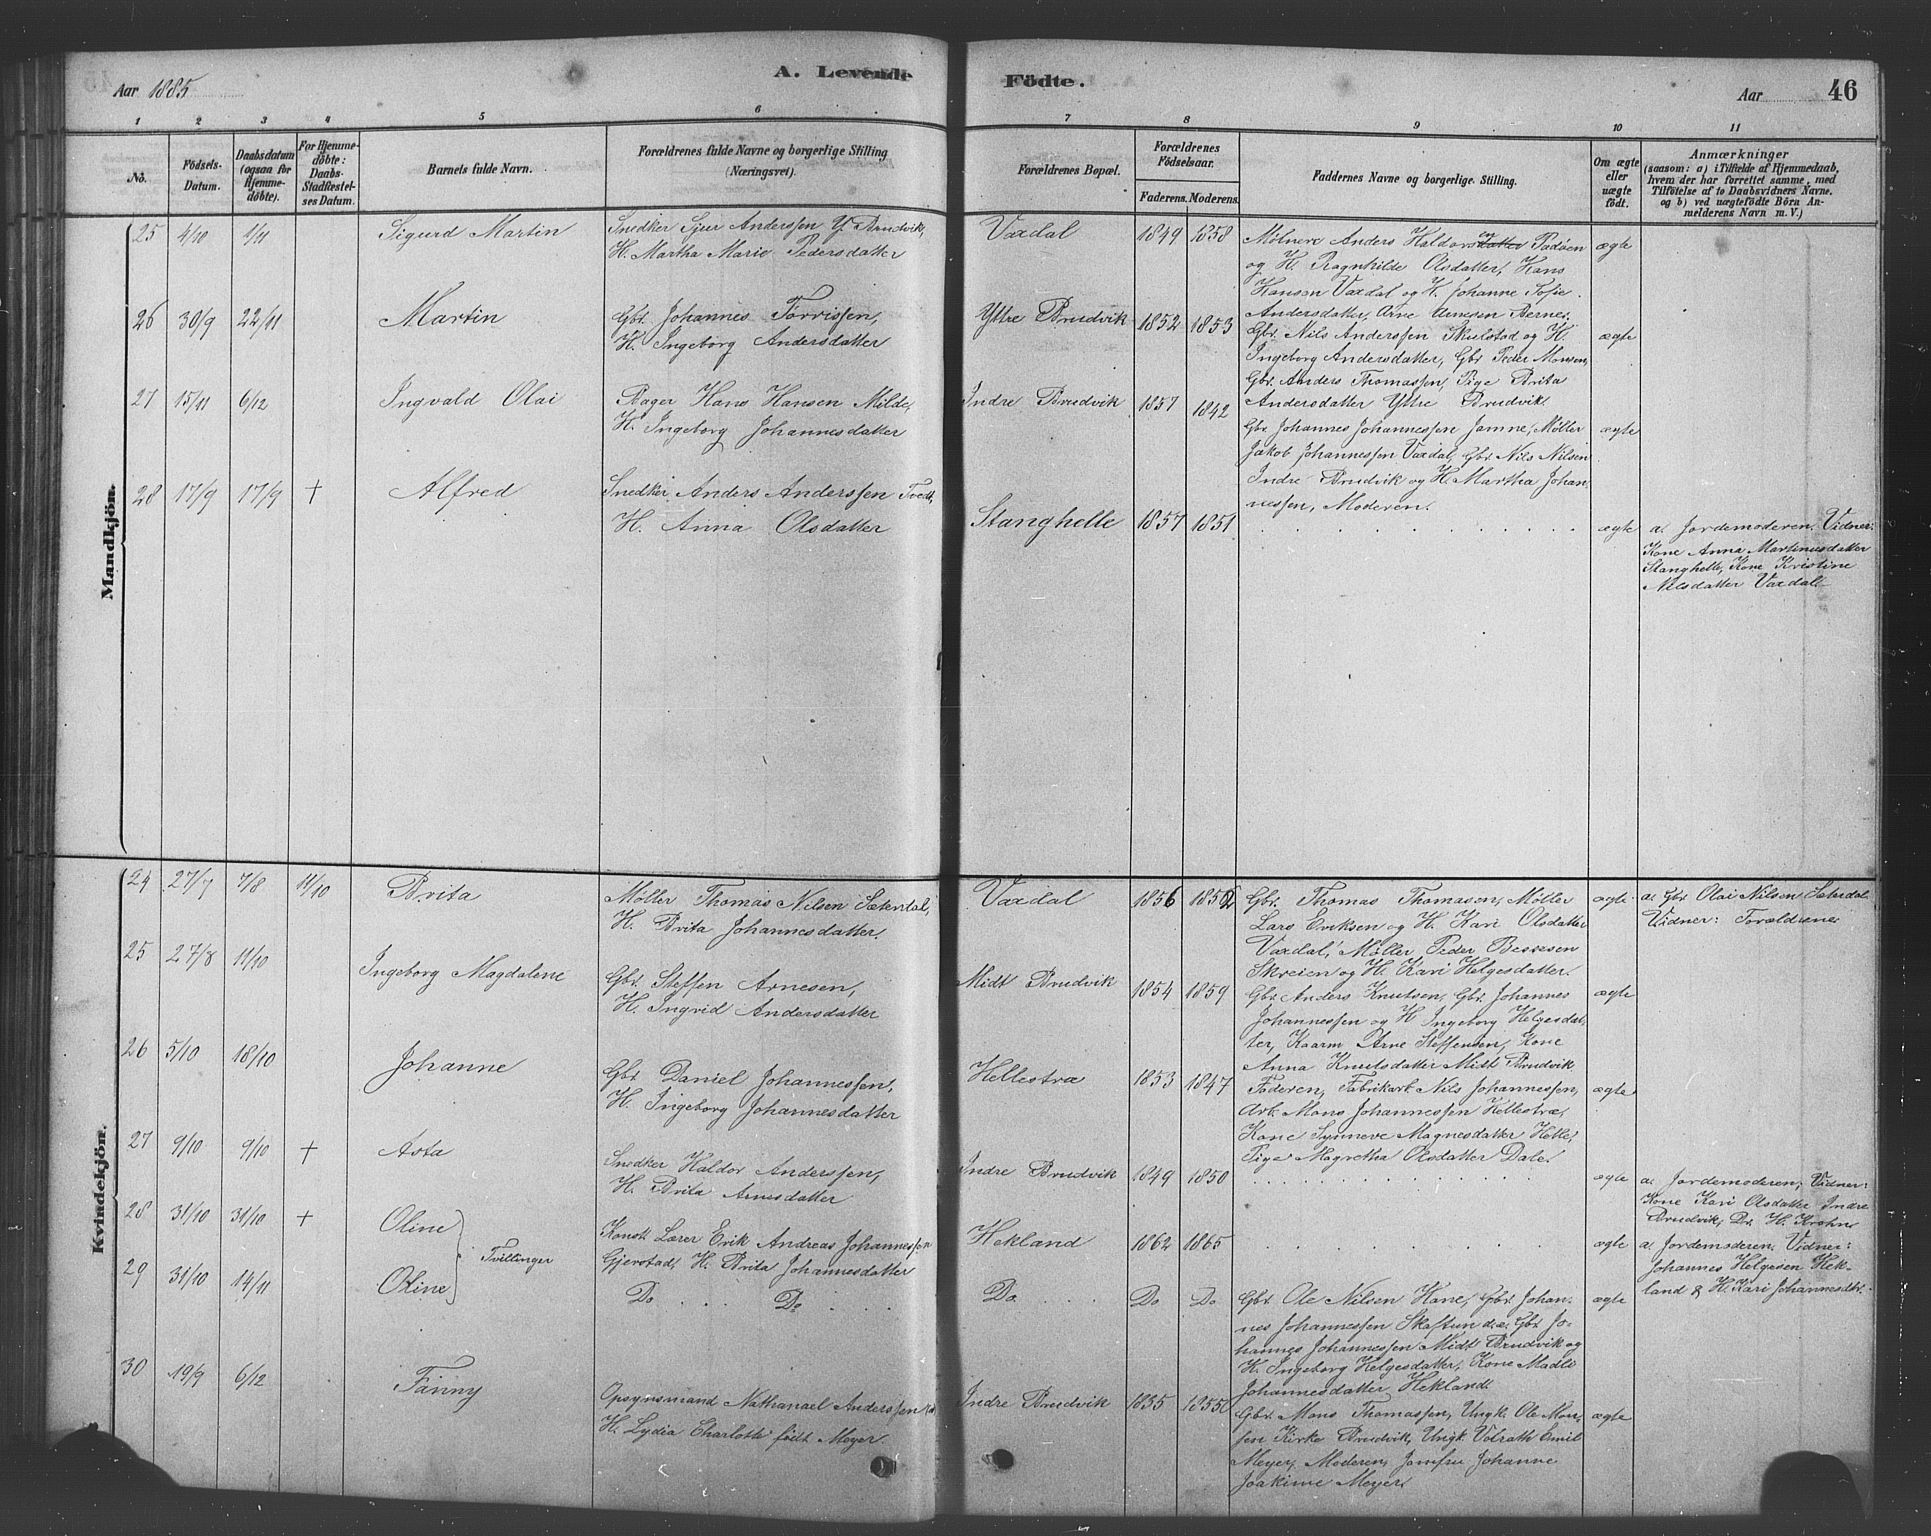 Aar 1885
A. Levende
Födte.
Aar
46
1 2 3 4 5 6 7 8 9 10 11
No.
Födsels-
Datum.
Daabsdatum
(ogsaa for
Hjemme-
döbte).
For Hjemme-
döbte:
Daabs-
Stadfæstel-
ses Datum.
Barnets fulde Navn.
Forældrenes fulde Navne og borgerlige Stilling
(Næringsvei).
Forældrenes Bopæl.
Forældrenes
Födselsaar.
Faderens. Moderens.
Faddernes Navne og borgerlige Stilling.
Om ægte
eller
uægte
födt.
Anmærkninger
(saasom: a) i Tilfælde af Hjemmedaab,
hvem der har forrettet samme, med
Tilföielse af to Daabsvidners Navne,
og b) ved uægtefödte Börn An-
melderens Navn m. V.)
Mandkjön.
25 4/10 1/11 Sigurd Martin
Snedker Sjur Anderssen Y. Brudvik,
H. Martha Marie Pedersdatter
Vaxdal 1849 1858
Mølnere Anders Haldorsdatter en
og H. Ragnhilde Olsdatter, Hans
Hansen Vaxdal og H. Johanne Sofie
Andersdatter, Arne Bernes.
ægte
26 30/9 22/11 Martin
Gbr. Johannes Torrissen,
H. Ingeborg Andersdatter
Yttre Brudvik 1852 1853
Gbr. Nils Anderssen Skulstad og H.
Ingeborg Andersdatter, Gbr Peder Monsen,
Gbr. Anders Thomassen, Pige Brita
Andersdatter Yttre Brudvik.
ægte
27 15/11 6/12 Ingvald Olai
Bager Hans Hansen Milde,
H. Ingeborg Johannesdatter
Indre Brudvik 1857 1842
Gbr. Johannes Johannessen Jamne, Møller
Jakob Johannessen Vaxdal, Gbr. Nils Nilsen
Indre Brudvik og H. Martha Johan-
nessen, Moderen.
ægte
28 17/9 17/9 + Alfred
Snedker Anders Anderssen Tvedt,
H. Anna Olsdatter
Stanghelle 1857 1851
ægte
a. Jordemoderen. Vidner:
Kone Anna Martinusdatter
Stanghelle, Kone Kristine
Nilsdatter Vaxdal.
Kvindekjön.
24 27/7 7/8 11/10 Brita
Møller Thomas Nilsen Sæterdal,
H. Brita Johannesdatter.
Vaxdal 1856 1852
Gbr. Thomas Thomasen, Møller
Lars Eriksen og H. Kari Olsdatter
Vaxdal, Møller Peder Bessesen
Skreien og H. Kari Helgesdatter.
ægte
a. Gbr. Olai Nilsen Sæterdal
Vidner: Forældrene
25 27/8 11/10 Ingeborg Magdalene
Gbr. Steffen Arnesen,
H. Ingrid Andersdatter
Midt Brudvik 1854 1859
Gbr. Anders Knutsen, Gbr. Johannes
Johannessen og H Ingeborg Helgesdat-
ter, Kaarm Arne Steffensen, Kone
Anna Knutsdatter Midt Brudvik
ægte
26 5/10 18/10 Johanne
Gbr. Daniel Johannessen,
H. Ingeborg Johannesdatter
Hellestræ 1853 1847
Faderen, Fabrikarb. Nils Johannessen,
Arb. Mons Johannessen Hellestræ,
Kone Synneve Magnesdatter Helle,
Pige Magretha Olsdatter Dale.
ægte
27 9/10 9/10 + Asta
Snedker Haldor Anderssen,
H. Brita Arnesdatter
Indre Brudvik 1849 1850
ægte
a. Jordemoderen; Vidner:
Kone Kari Olsdatter Indre
Brudvik, Dr. H. Krohn
28 31/10 31/10 + Oline
Tvillinger
Konst. Lærer Erik Andreas Johannessen
Gjerstad, H. Brita Johannesdatter
Hekland 1862 1865
ægte
a. Jordemoderen. Vidner:
Johannes Helgesen Hek-
land & H. Kari Johannesdtr.
29 31/10 14/11 Oline
Do Do
Do Do Do
Gbr. Ole Nilsen Hane, Gbr. Johan-
nes Johannessen Skaftun Gbr. Jo-
hannes Johannessen Midt Brudvik og
H. Ingeborg Helgesdatter, Kone Madli
Johannesdatter Hekland.
ægte
30 19/9 6/12 Fanny
Opsynsmand Nathanael Anderssen
H. Lydia Charlotte født Meyer.
Indre Brudvik 1835 1855
Gbr. Mons Thomassen, Ungk. Ole Mon-
sen Kirke Brudvik, Ungk. Volrath Emil
Meyer, Moderen, Jomfru Johanne
Joakime Meyer.
ægte